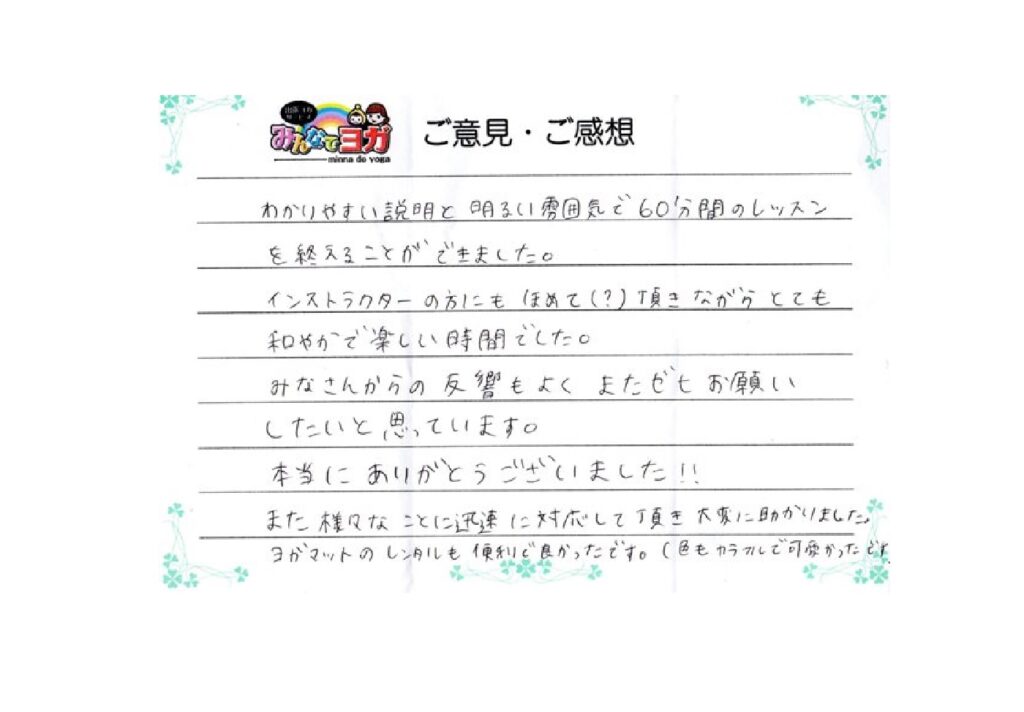 出張ヨガ
サービス
みんなでヨガ
minna de yoga
ご意見・ご感想
わかりやすい説明と 明るい雰囲気で60分間のレッスン
を終えることができました。
インストラクターの方にも ほめて(?)頂きながらとても
和やかで楽しい時間でした。
みなさんからの反響もよく またぜひお願い
したいと思っています。
本当にありがとうございました!!
また 様々な ことに迅速に対応して頂き 大変に助かりました。
ヨガマットの レンタルも 便利で良かったです。(色もカラフルで可愛かったです